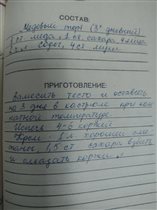 СОСТАВ:
Медовый торт (3х дневный)
2 ст. меда, 1 ст. сахара, 4 яйца
1 ч. л. соды, 4 ст. муки
ПРИГОТОВЛЕНИЕ:
Замесить тесто и оставить
на 3 дня в кастрюле при ком
натной температуре
Испечь 4-6 коржей
Крем: 1 л. хорошей сме
таны, 1,5 ст. сахара взбить
и смазать коржи.